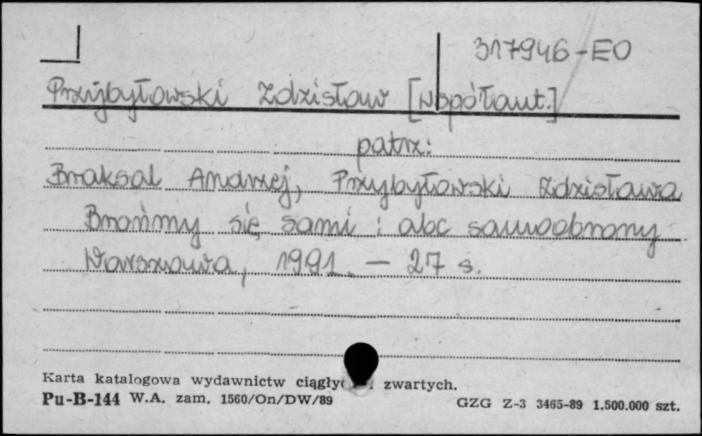 317946-EO
Przybyłowski Zdzisław [współaut.]
patrz:
Braksal Andrzej, Przybyłowski Zdzisława
Brońmy się sami : abc samoobrony
Warszawa, 1991. – 27 s.
Karta katalogowa wydawnictw zwartych.
Pu-B-144 W.A. zam. 1560/On/DW/89 GZG Z-3 3465-89 1.500.000 szt.